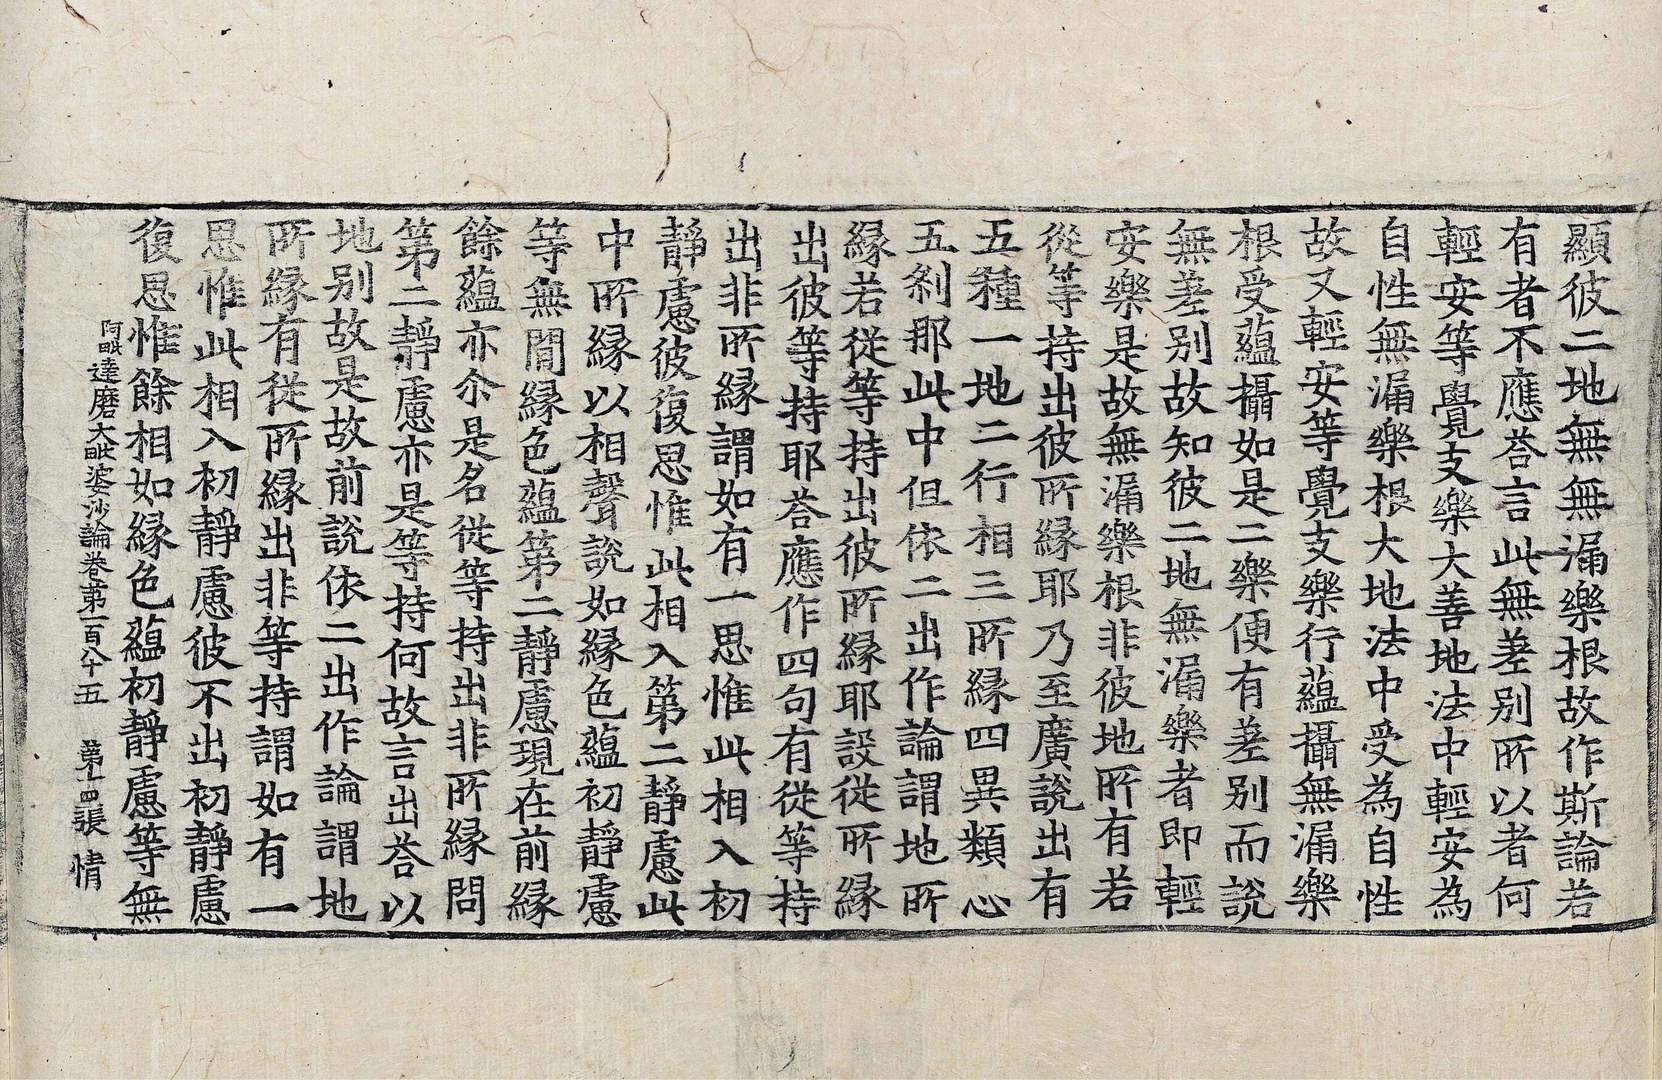 顯彼二地無無漏樂根故作斯論若
有者不應荅言此無差別所以者何
輕安等覺支樂大善地法中輕安為
自性無漏樂根大地法中受為自性
故又輕安等覺支樂行蘊攝無漏樂
根受蘊攝如是二樂便有差别而說
無差别故知彼二地無漏樂者即輕
安樂是故無漏樂根非彼地所有若
從等持出彼所縁耶乃至廣說出有
五種一地二行相三所縁四異類心
五刹那此中但依二出作論謂地所
縁若從等持出彼所縁耶設從所縁
出彼等持耶荅應作四句有從等持
出非所縁謂如有一思惟此相入初
靜慮彼復思惟此相入第二靜慮此
中所縁以相聲說如縁色蘊初靜慮
等無閒縁色蘊第二靜慮現在前縁
餘蘊亦尒是名從等持出非所縁問
第二靜慮亦是等持何故言出荅以
地别故是故前說依二出作論謂地
所縁有從所縁出非等持謂如有一
思惟此相入初靜慮彼不出初靜慮
復思惟餘相如縁色蘊初靜慮等無
阿毗達磨大毗婆沙論卷第一百八十五　第十四張　情